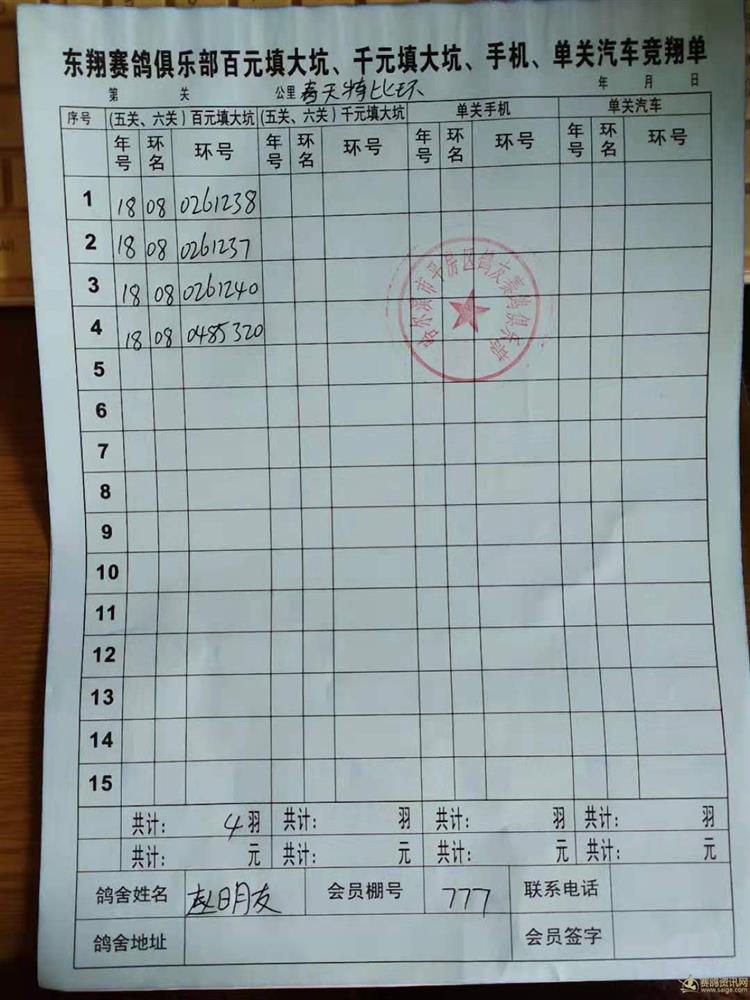 东翔赛鸽俱乐部百元填大坑、千元填大坑、手机、单关汽车竞翔单
第 关 公里 春天特比环 年 月 日
序号 (五关、六关)百元填大坑 (五关、六关)千元填大坑 单关手机 单关汽车
年号 环名 环号 年号 环名 环号 年号 环名 环号 年号 环名 环号
1 18 08 0261238
2 18 08 0261237
3 18 08 0261240
4 18 08 0485320
5
6
7
8
9
10
11
12
13
14
15
共计: 4 羽 共计: 羽 共计: 羽 共计: 羽
共计: 元 共计: 元 共计: 元 共计: 元
鸽舍姓名 赵明友 会员棚号 777 联系电话
鸽舍地址 会员签字
哈尔滨市平房区鸽友赛鸽俱乐部
赛鸽资讯网
www.saige.com